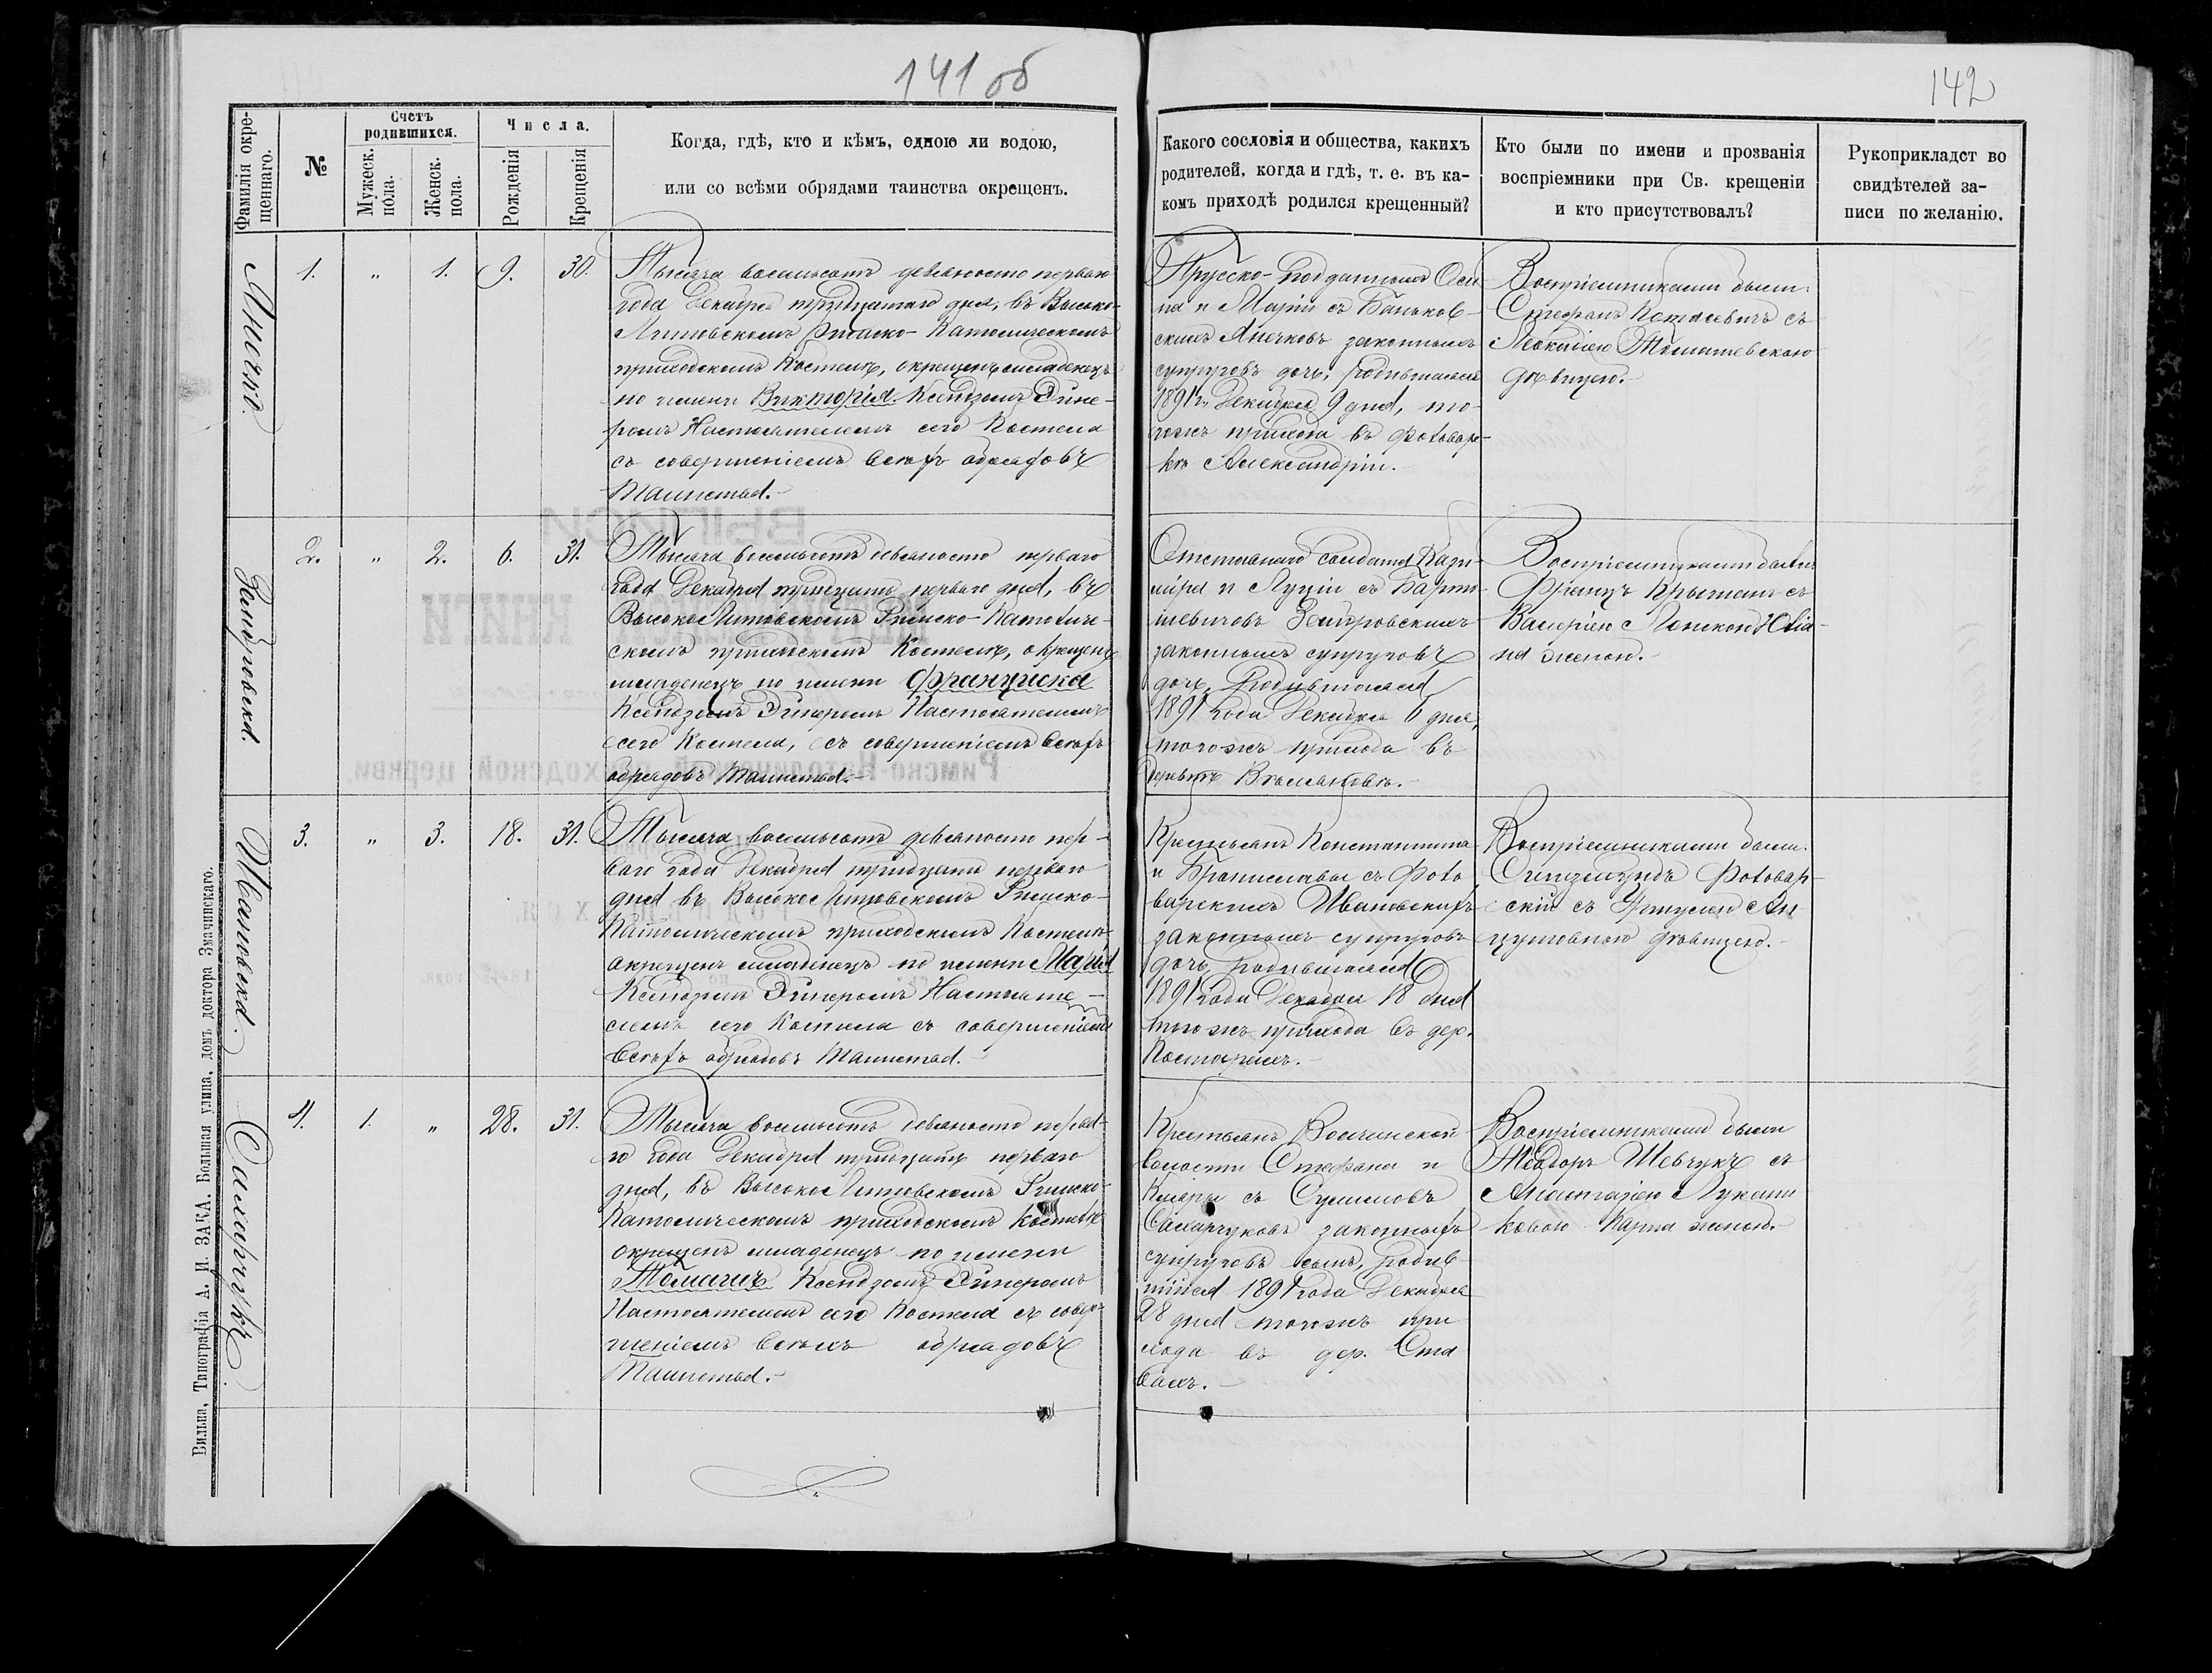 141 об
142
Фамилія окре-
щеннаго.
№
Счетъ
родившихся.
Мужеск.
пола.
Женск.
пола.
Числа.
Рожденія
Крещенія
Когда, гдѣ, кто и кѣмъ, одною ли водою,
или со всѣми обрядами таинства окрещенъ.
Какого сословія и общества, какихъ
родителей, когда и гдѣ, т. е. въ ка-
комъ приходѣ родился крещенный?
Кто были по имени и прозванія
воспріемники при Св. крещеніи
и кто присутствовалъ?
Рукоприкладст во
свидѣтелей за-
писи по желанію.
1.
"
1.
9.
30.
Тысяча восемьсотъ девяносто перваго
года Декабря тридцатаго дня, въ Высоко-
Литовскомъ Римско-Католическомъ
приходскомъ Костелѣ, окрещенъ младенецъ
по имени Викторія Ксендзомъ
Настоятелемъ сего Костела
съ совершеніемъ всѣхъ обрядовъ
таинства.-
Прусско-подданныхъ Оси
па и Маріи съ Баньков-
скихъ законныхъ
супруговъ дочь, родившаяся
1891 г. Декабря 9 дня, то-
гожъ прихода въ фольвар-
кѣ Александріи.
Воспріемниками были:
Стефанъ съ
Леокадіею Томашевскою
дѣвицею.-
2.
"
2.
6.
31.
Тысяча восемьсотъ девяносто перваго
года Декабря тридцать перваго дня, въ
Высоко Литовскомъ Римско-Католиче-
скомъ приходскомъ Костелѣ, окрещенъ
младенецъ по имени Франциска
Ксендзомъ Настоятелемъ
сего Костела, съ совершеніемъ всѣхъ
обрядовъ таинства.-
Отставнаго солдата Кази-
міра и Луціи съ Барто-
шевичовъ
законныхъ супруговъ
дочь, родившаяся
1891 года Декабря 6 дня,
тогожъ прихода въ
деревнѣ
Воспріемниками были
Францъ съ
Валеріею
на женою.-
3.
"
3.
18.
31.
Ивановска.
Тысяча восемьсотъ девяносто пер-
ваго года Декабря тридцать перваго
дня въ Высоко Литовскомъ Римско-
Католическомъ приходскомъ Костелѣ
окрещенъ младенецъ по имени Марія
Ксендзомъ Настояте-
лемъ сего Костела съ совершеніемъ
всѣхъ обрядовъ таинства.-
Крестьянъ Константина
и Брониславы съ Фоль
варскихъ Ивановскихъ
законныхъ супруговъ
дочь, родившаяся
1891 года Декабря 18 дня
тогожъ прихода въ дер.
Костарахъ.-
Воспріемниками были:
Сигизмундъ Фольвар-
скій съ
дѣвицею.-
4.
1.
"
28.
31.
Сахарчукъ.
Тысяча восемьсотъ девяносто перва-
го года Декабря тридцать перваго
дня, въ Высоко Литовскомъ Римско-
Католическомъ приходскомъ Костелѣ
окрещенъ младенецъ по имени
Томашъ Ксендзомъ
Настоятелемъ сего Костела съ совер-
шеніемъ всѣхъ обрядовъ
таинства.-
Крестьянъ Волчинской
волости Стефана и
Клары съ
Сахарчуковъ законныхъ
супруговъ сынъ, родив-
шійся 1891 года Декабря
28 дня тогожъ при
хода въ дер. Ста
вахъ.-
Воспріемниками были
Теодоръ Шевчукъ съ
Анастазіею
Карпа женою.-
Вильна, Типографія А. И. ЗАКА. Большая улица, домъ доктора Значинскаго.